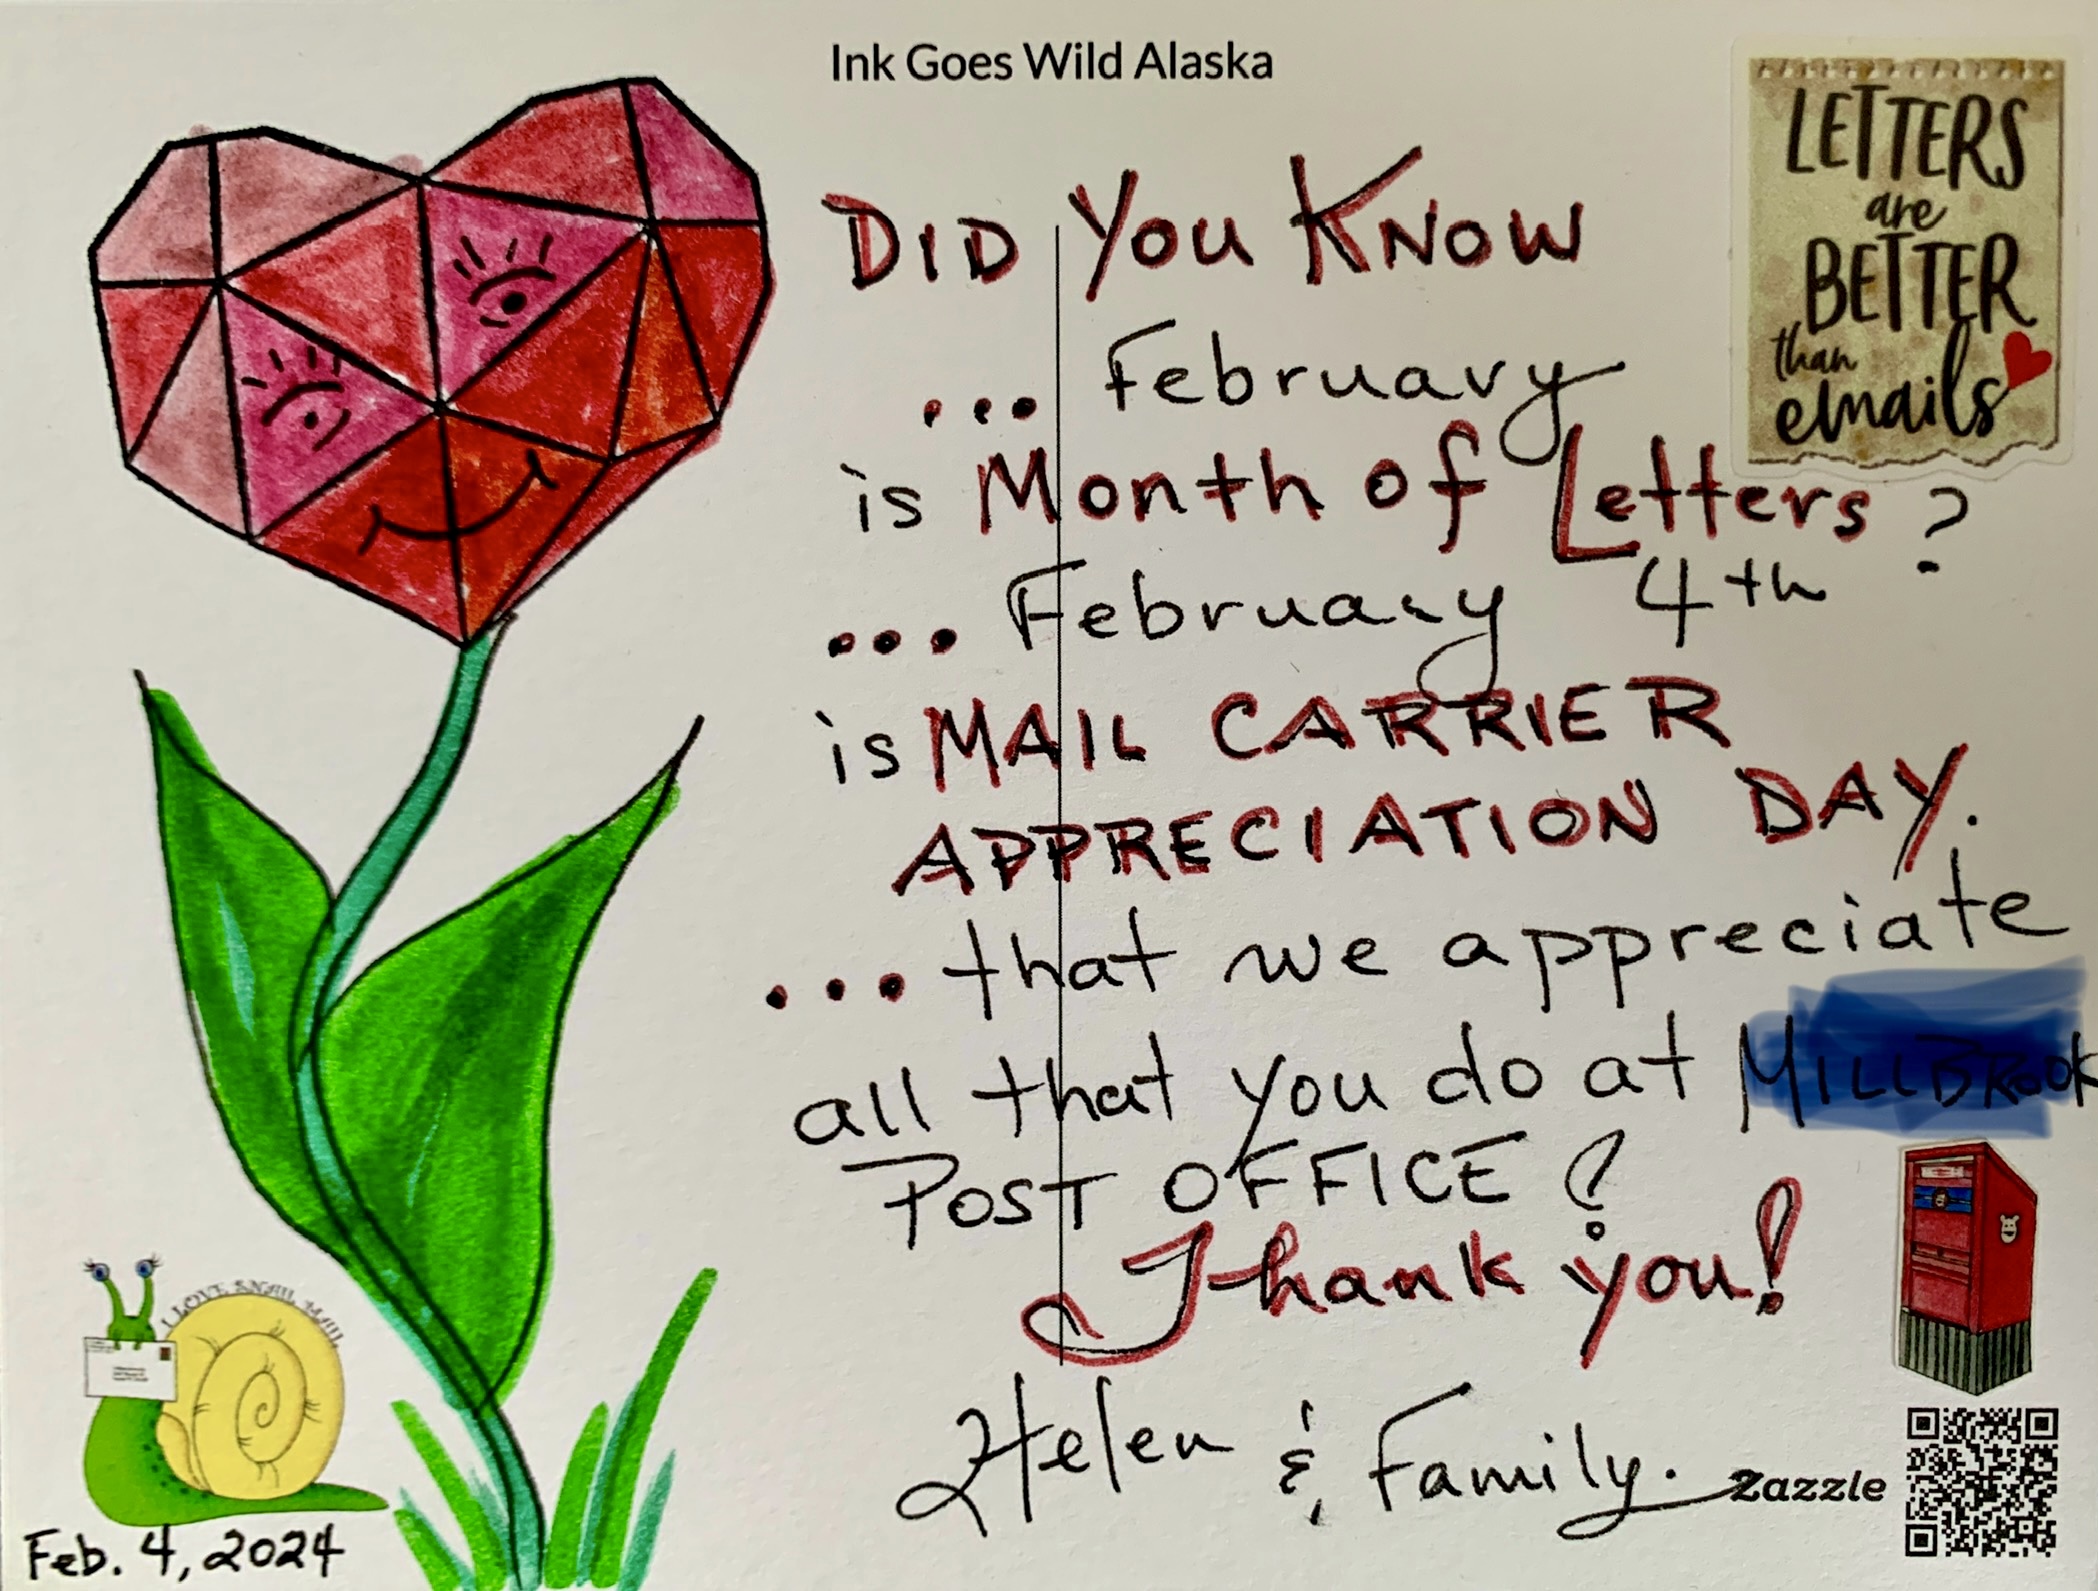 Ink Goes Wild Alaska
LETTERS
are
BETTER
than
emails
DID YOU KNOW
... February
is Month of Letters?
... February 4th
is MAIL CARRIER
APPRECIATION DAY.
... that we appreciate
all that you do at MILLBROOK
POST OFFICE?
Thank you!
Helen & Family.
Zazzle
I LOVE SNAIL MAIL
Feb. 4, 2024